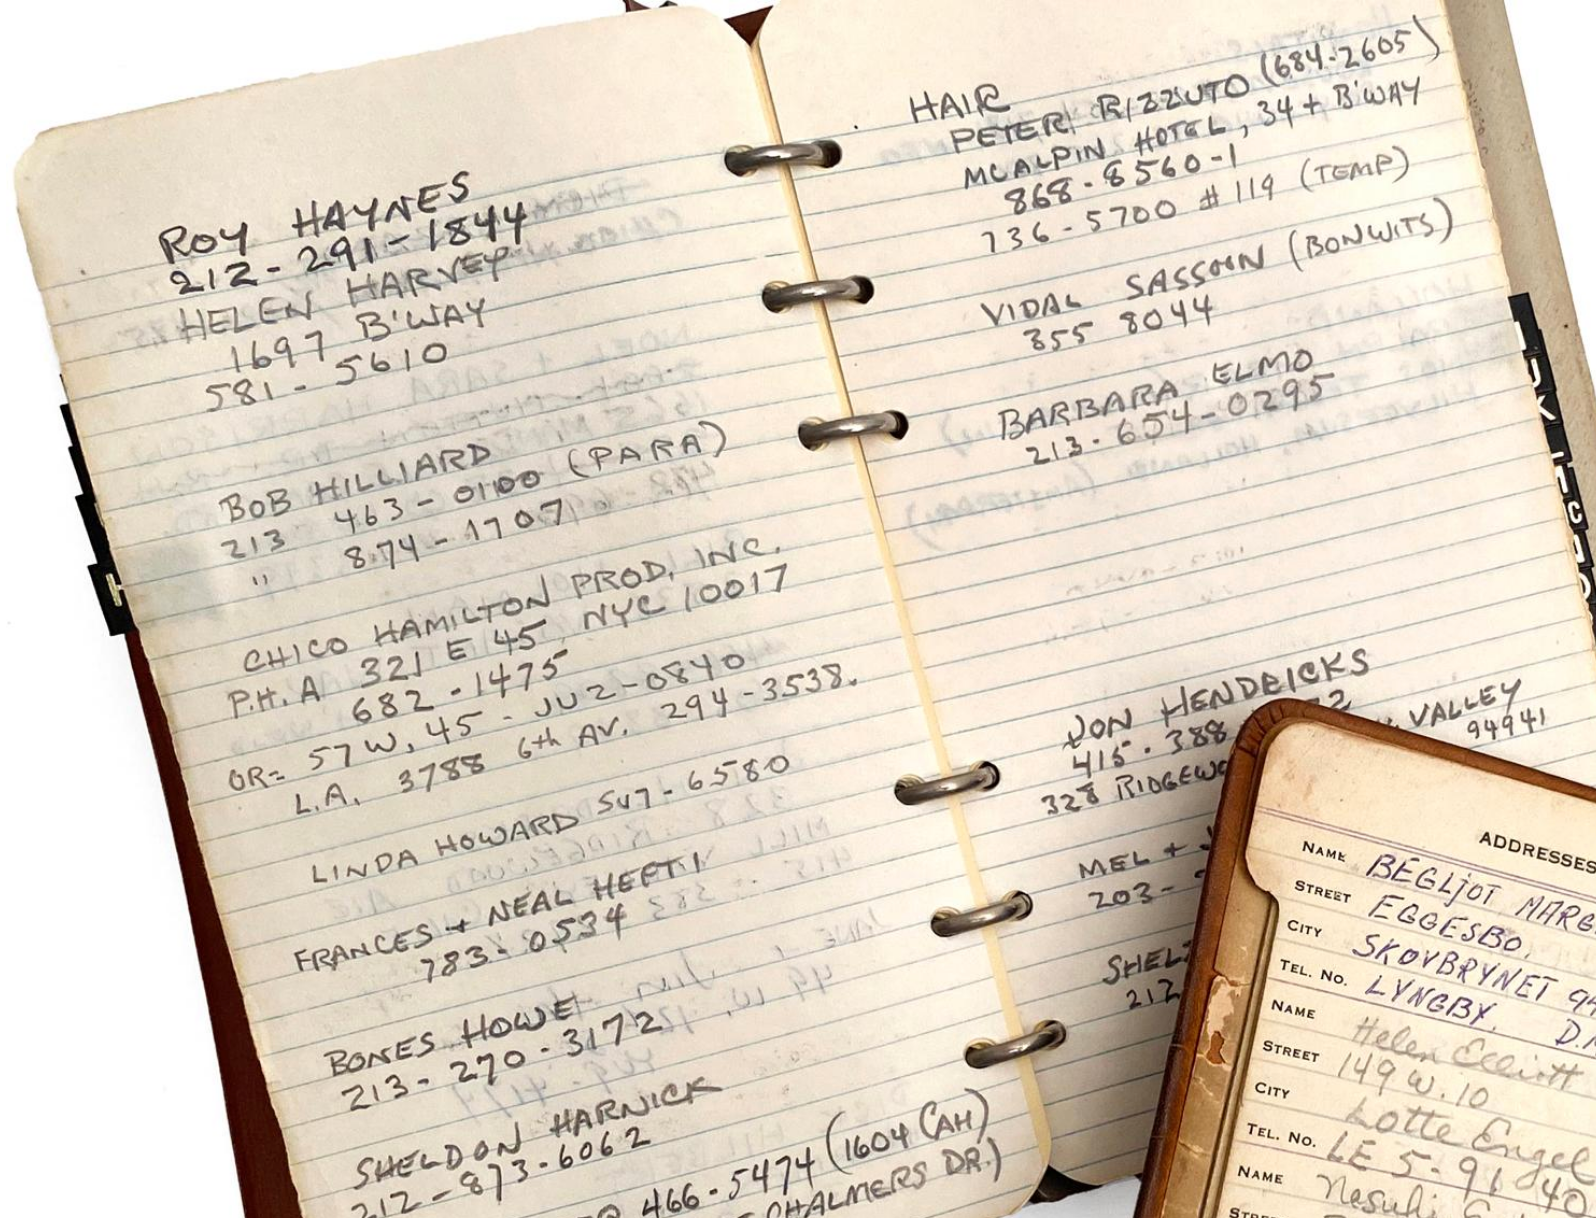 ROY HAYNES
212-291-1844
HELEN HARVEY
1697 B'WAY
581-5610
BOB HILLIARD
213 463-0100 (PARA)
" 874-1707
CHICO HAMILTON PROD. INC.
P.H. A 321 E 45, NYC 10017
682-1475
OR= 57 W. 45 - JU2-0840
L.A. 3788 6th AV. 294-3538.
LINDA HOWARD 547-6580
FRANCES + NEAL HEFTI
783-0534
BONES HOWE
213-270-3172
SHELDON HARNICK
212-873-6062
466-5474 (1604 CAH)
CHALMERS DR.)
HAIR
PETER RIZZUTO (684-2605)
MCALPIN HOTEL, 34 + B'WAY
868-8560-1
736-5700 #119 (TEMP)
VIDAL SASSOON (BONWITS)
355 8044
BARBARA ELMO
213-654-0295
JON HENDRICKS
415-388 2
328 RIDGEWO VALLEY
94941
MEL +
203-
SHEL
212
ADDRESSES
NAME BEGLJOT MARG
STREET EGGESBO.
CITY SKOVBRYNET 94
TEL. NO. LYNGBY. D.
NAME Helen Elliott
STREET 149 W. 10
CITY Lotte Engel
TEL. NO. LE 5-91 40
NAME Nesuhi
STREE
H
J
K